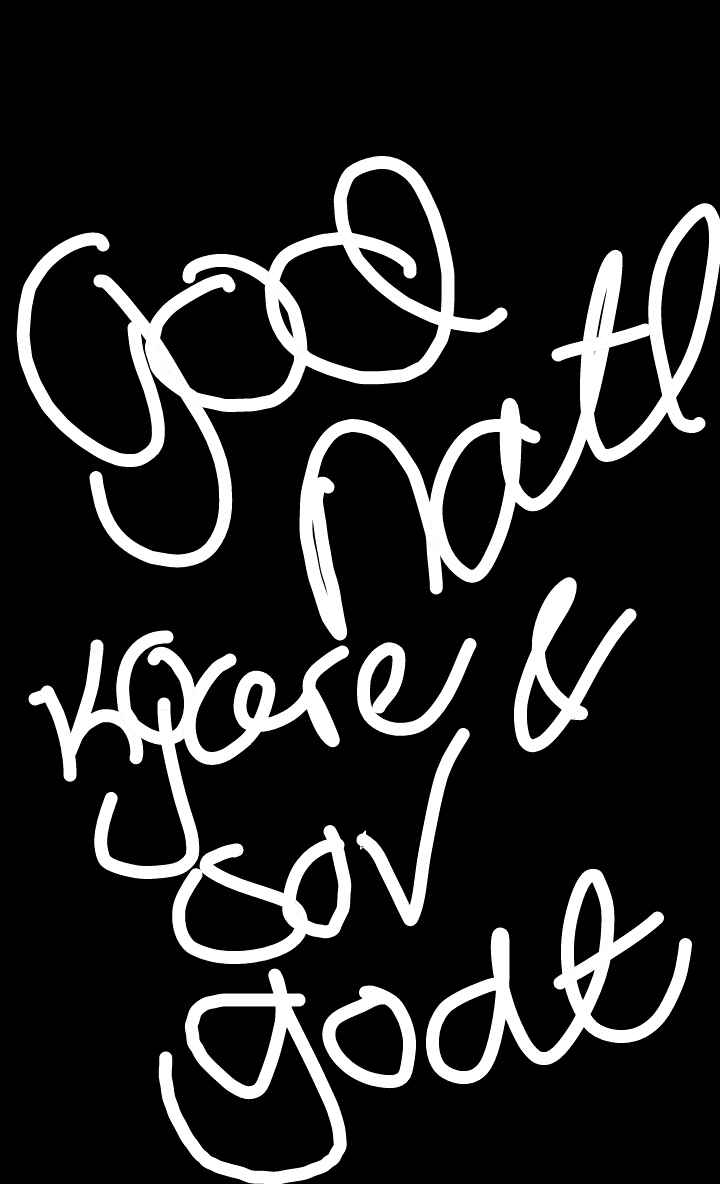 god
natt
kjære &
sov
godt